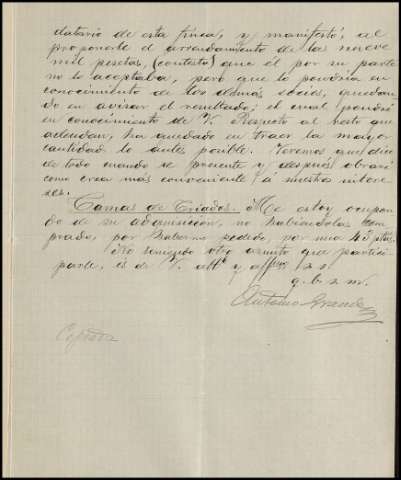 datario de esta finca, y manifestó, al
proponerle el arrendamiento de las nueve
mil pesetas, (contesta) que él por su parte
no lo aceptaba, pero que lo pondria en
conocimiento de los demás sócios, quedan-
do en avisar el resultado; el cual pondré
en conocimiento de V. Respecto al resto que
adeudan, ha quedado en traer la mayor
cantidad lo antes posible. Veremos que dice
de todo cuando se presente y después obraré
como crea más conveniente á nuestros intere-
ses.
Camas de Criados. Me estoy ocupan-
do de su adquisición, no habiéndolas com-
prado, por haberme pedido, por una 45 ptas.
No teniendo otro asunto que partici-
parle, es de V. affº y s. s.
q. b. s. m.
Antonio